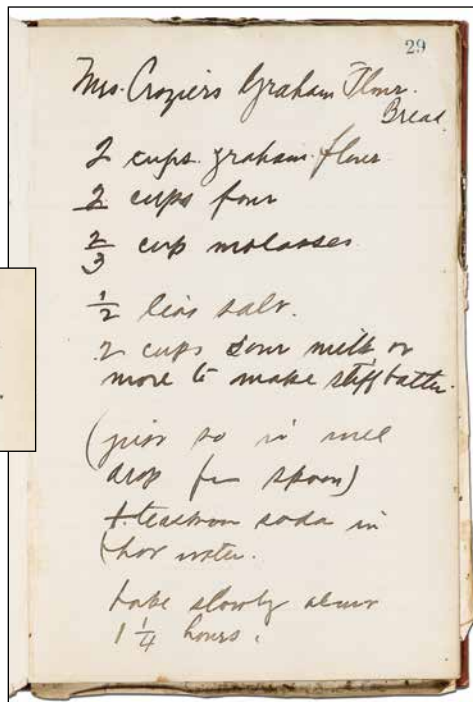 29
Mrs. Croziers Graham Flour.
Bread
2 cups graham flour
2 cups flour
2/3 cup molasses
1/2 teas salt.
2 cups sour milk or
more to make stiff batter.
(just so it will
drop from spoon)
1 teaspoon soda in
(hot water.
bake slowly about
1 1/4 hours.